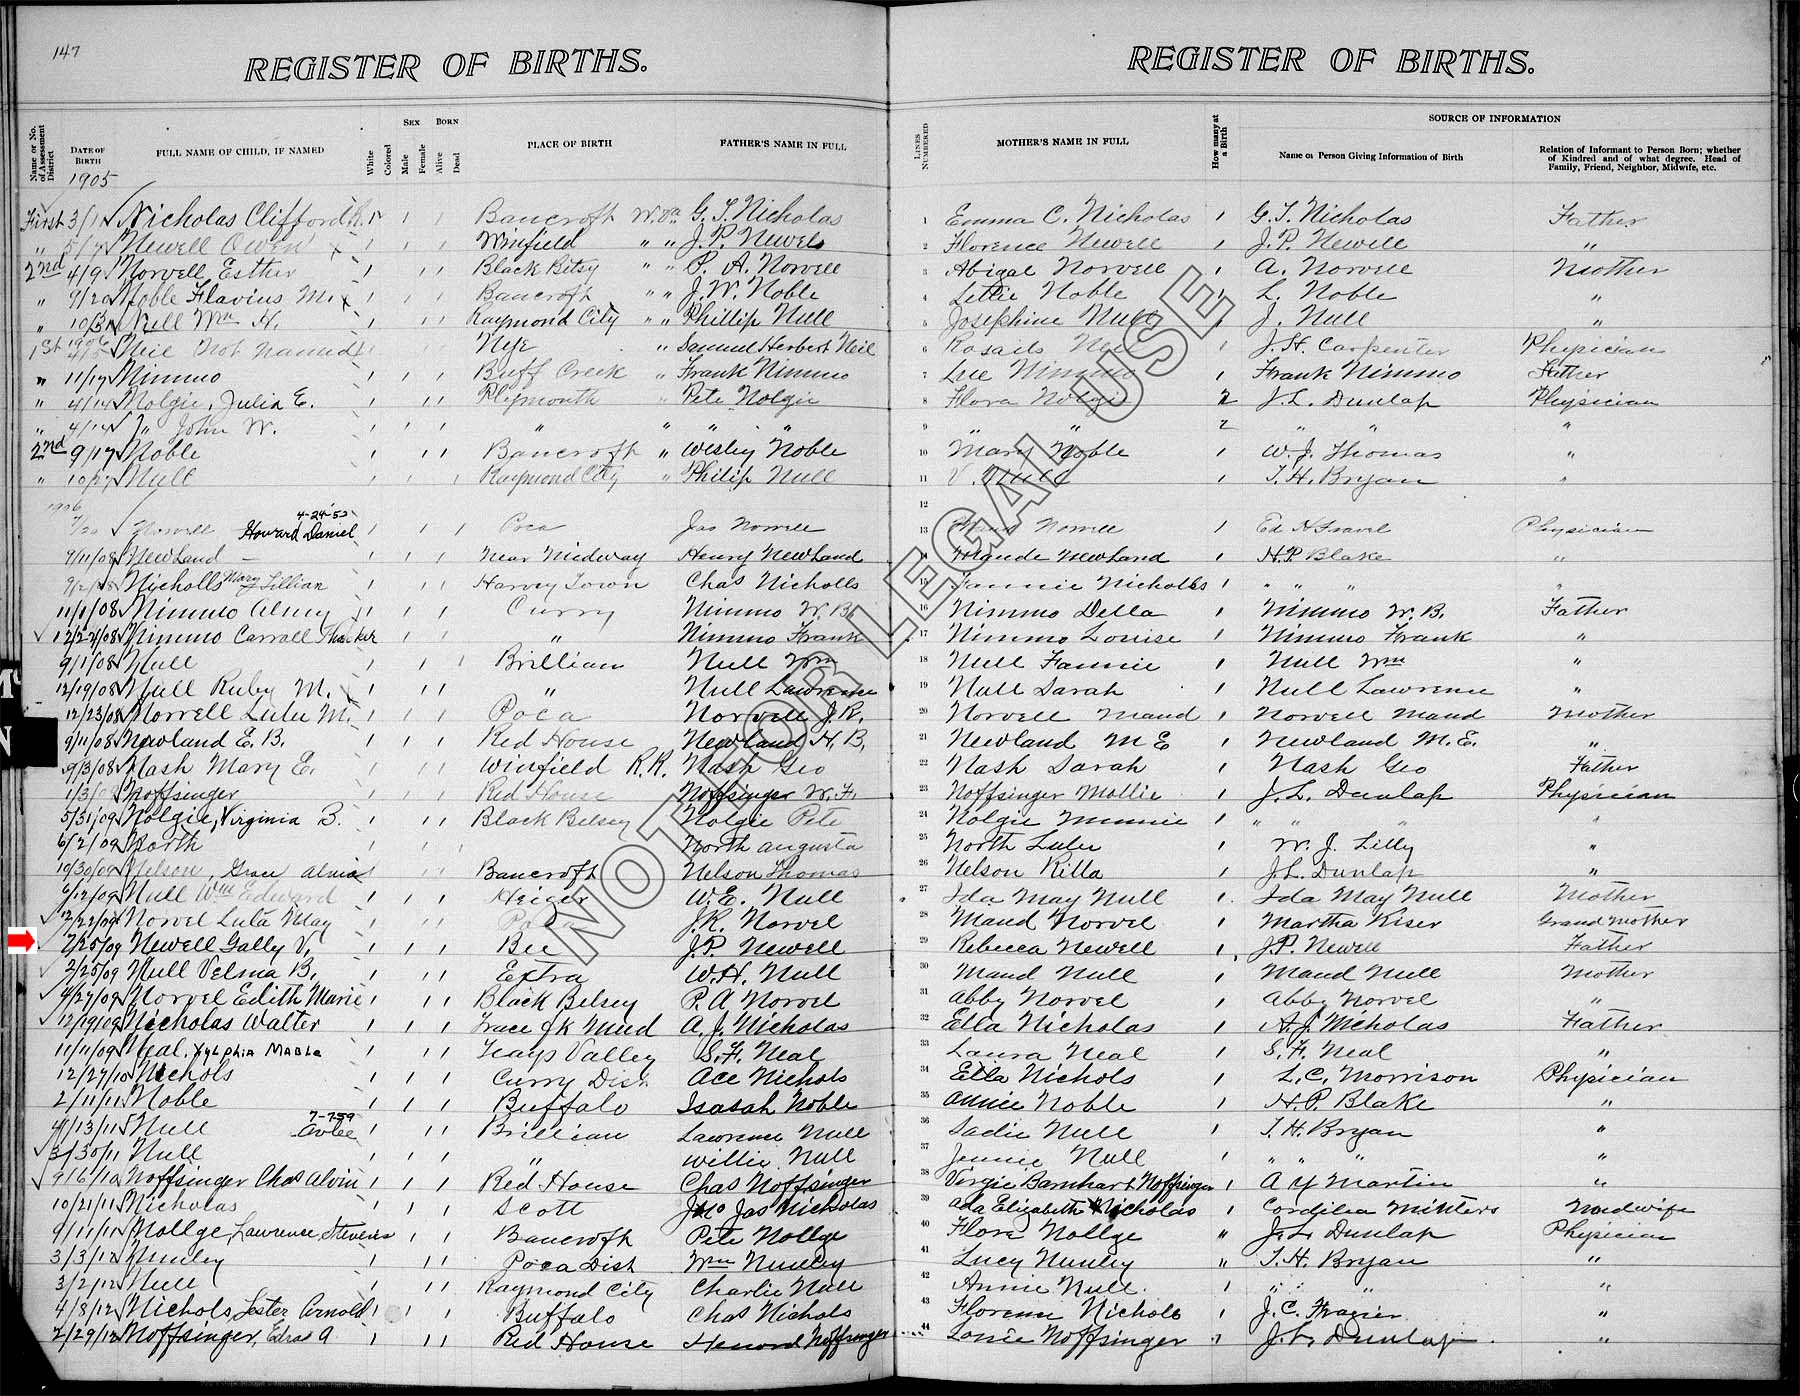 147
REGISTER OF BIRTHS. REGISTER OF BIRTHS.
Name or No. of Assessment District
DATE OF BIRTH
FULL NAME OF CHILD, IF NAMED
White
Colored
SEX
Male
Female
BORN
Alive
Dead
PLACE OF BIRTH
FATHER'S NAME IN FULL
LINES NUMBERED
MOTHER'S NAME IN FULL
How many at a Birth
SOURCE OF INFORMATION
Name of Person Giving Information of Birth
Relation of Informant to Person Born; whether
of Kindred and of what degree. Head of
Family, Friend, Neighbor, Midwife, etc.
1905
First Nicholas Clifford Bancroft W.Va G. T. Nicholas 1 Emma C. Nicholas 1 G. T. Nicholas Father
" Newell Owen Winfield " " J. P. Newell 2 Florence Newell 1 J. P. Newell "
2nd 4/9 Norvell Esther Black Betsy " " P. A. Norvell 3 Abigal Norvell 1 A. Norvell Mother
" 9/20 Noble Flavius M. Bancroft " " J. W. Noble 4 Lettie Noble 1 L. Noble "
" Null Wm H. Raymond City " " Phillip Null 5 Josephine Null 1 J. Null "
1906
1st 4/5 Neil Not Named Nye " Samuel Herbert Neil 6 1 J. H. Carpenter Physician
" 11/17 Nimmo Buff Creek " Frank Nimmo 7 Lue Nimmo 1 Frank Nimmo Father
" 4/14 Nolgie, Julia E. Plymouth " Pete Nolgie 8 Flora Nolgie 2 J. L. Dunlap Physician
" 4/14 " John W. " " " 9 " " 2 " " "
2nd 9/17 Noble Bancroft " Wesley Noble 10 Mary Noble 1 W. J. Thomas "
" Null Raymond City " Philip Null 11 V. Null 1 T. H. Bryan "
1906 12
4-24-52
Norvell Howard Daniel Poca Jas Norvell 13 Norvell 1 Physician
9/11/08 Newland Near Midway Henry Newland 14 Maude Newland 1 H. P. Blake "
Nicholls Mary Lillian Harvey Town Chas Nicholls 15 Fannie Nicholls 1 " " " "
11/1/08 Nimmo Curry Nimmo W. B. 16 Nimmo Della 1 Nimmo W. B. Father
12/24/08 Nimmo Carroll " Nimmo Frank 17 Nimmo Louise 1 Nimmo Frank "
9/1/08 Null Brillian Null Wm 18 Null Fannie 1 Null Wm "
12/19/08 Null Ruby M. " Null Lawrence 19 Null Sarah 1 Null Lawrence "
12/23/08 Norvell Lulu M. Poca Norvell J. R. 20 Norvell Maud 1 Norvell Maud Mother
9/11/08 Newland E. B. Red House Newland H. B. 21 Newland M E 1 Newland M. E. "
9/3/08 Nash Mary E. Winfield R. R. Nash Geo 22 Nash Sarah 1 Nash Geo Father
Noffsinger Red House Noffsinger W. F. 23 Noffsinger Mollie 1 J. L. Dunlap Physician
5/31/09 Nolgie, Virginia B. Black Betsey Nolgie Pete 24 Nolgie Minnie 1 " " " "
6/2/09 North North Augusta 25 North Lulu 1 W. J. Lilly "
10/30/09 Nelson, Grace Bancroft Nelson Thomas 26 Nelson Rilla 1 J. L. Dunlap "
6/12/09 Null Wm Edward Heiger W. E. Null 27 Ida May Null 1 Ida May Null Mother
Norvel Lula May Poca J. R. Norvel 28 Maud Norvel 1 Martha Kiser Grand Mother
7/25/09 Newell Gally V. Bee J. P. Newell 29 Rebecca Newell 1 J. P. Newell Father
2/25/09 Null Velma B. Extra W. H. Null 30 Maud Null 1 Maud Null Mother
4/27/09 Norvel Edith Marie Black Betsey P. A Norvel 31 Abby Norvel 1 Abby Norvel "
12/19/09 Nicholas Walter A. J. Nicholas 32 Ella Nicholas 1 A. J. Nicholas Father
11/11/09 Neal, Xylphia Mable Teays Valley S. F. Neal 33 Laura Neal 1 S. F. Neal "
12/27/10 Nichols Curry Dist Ace Nichols 34 Etta Nichols 1 L. C. Morrison Physician
2/11/11 Noble Buffalo Isaiah Noble 35 Annie Noble 1 H. P. Blake "
7-7-59
4/13/11 Null Brillian Lawrence Null 36 Sadie Null 1 T. H. Bryan "
3/30/11 Null " Willie Null 37 Jennie Null " " " "
9/6/10 Noffsinger Chas Alvin Red House Chas Noffsinger 38 Virgie Barnhart Noffsinger 1 A Y Martin "
10/21/11 Nicholas Scott Jas Nicholas 39 Ada Elizabeth Nicholas 1 Cordilea Midwife
9/11/11 Nollge, Lawrence Bancroft Pete Nollge 40 Flora Nollge " J. L. Dunlap Physician
3/3/12 Nunley Poca Dist Wm Nunley 41 Lucy Nunley " T. H. Bryan "
3/2/12 Null Raymond City Charlie Null 42 Annie Null 1 " " "
4/8/12 Nichols, Lester Arnold Buffalo Chas Nichols 43 Florence Nichols 1 J. C. Frazier "
2/29/12 Noffsinger, A. Red House Noffsinger 44 Noffsinger 1 J. L. Dunlap "
NOT FOR LEGAL USE